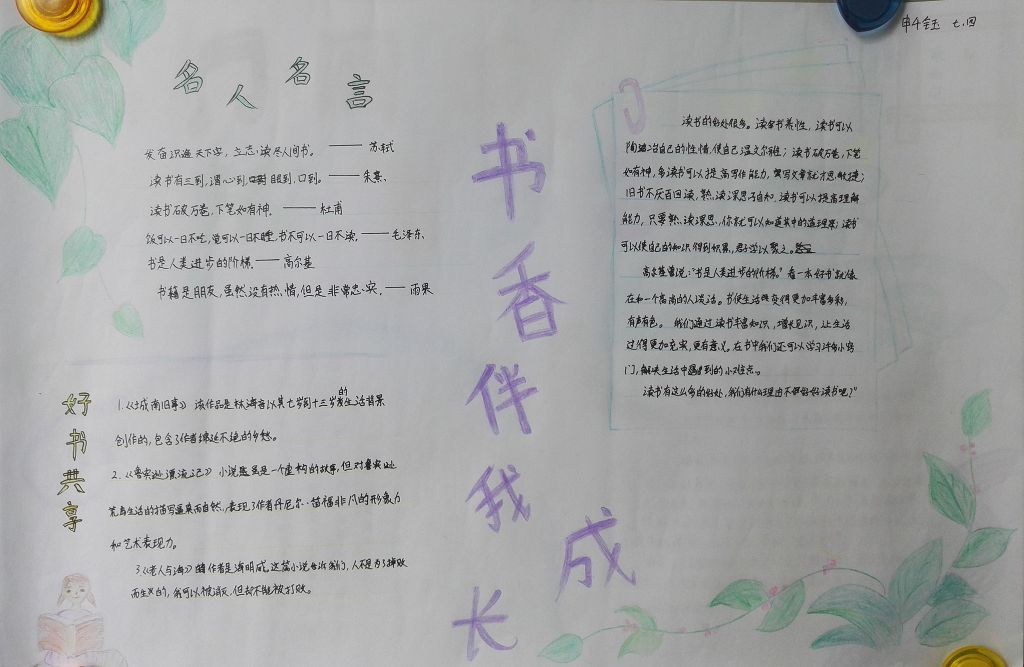 申千钰 七.四
名人名言
发奋识遍天下字，立志读尽人间书。—— 苏轼
读书有三到，谓心到，眼到，口到。—— 朱熹、
读书破万卷，下笔如有神。—— 杜甫
饭可以一日不吃，觉可以一日不睡，书不可以一日不读。—— 毛泽东、
书是人类进步的阶梯。—— 高尔基
书籍是朋友，虽然没有热情，但是非常忠实。—— 雨果
书香伴我成长
读书的好处很多。读书养性，读书可以
陶冶自己的性情，使自己温文尔雅；读书破万卷，下笔
如有神，多读书可以提高写作能力，写文章就才思敏捷；
旧书不厌百回读，熟读深思子自知，读书可以提高理解
能力，只要熟读深思，你就可以知道其中的道理来；读书
可以使自己的知识得到积累，君子学以聚之。
高尔基曾说："书是人类进步的阶梯。"看一本好书就像
在和一个高尚的人谈话。书使生活变得更加丰富多彩，
有声有色。我们通过读书丰富知识，增长见识，让生活
过得更加充实，更有意义。在书中我们还可以学习许多小窍
门，解决生活中遇到的小难点。
读书有这么多的好处，我们有什么理由不好好读书吧？"
好书共享
1.《城南旧事》该作品是林海音以其七岁到十三岁的生活背景
创作的，包含了作者绵延不绝的乡愁。
2.《鲁宾逊漂流记》小说虽是一个虚构的故事，但对鲁宾逊
荒岛生活的描写逼真而自然，表现了作者丹尼尔·笛福非凡的形象力
和艺术表现力。
3.《老人与海》作者是海明威，这篇小说告诉我们，人不是为了挫败
而生的，我可以被消灭，但却不能被打败。